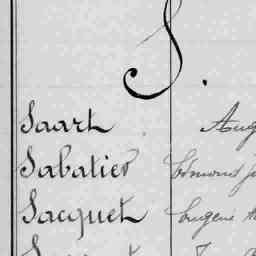 S.
Saart Aug
Sabatier Edmond J
Sacquet Eugene